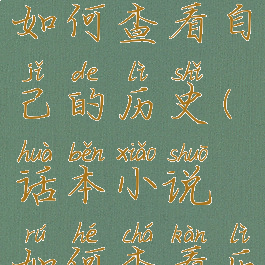 如何查看自
jǐ de lì shǐ
己的历史(
huà běn xiǎo shuō
话本小说
rú hé chá kàn lì
如何查看历